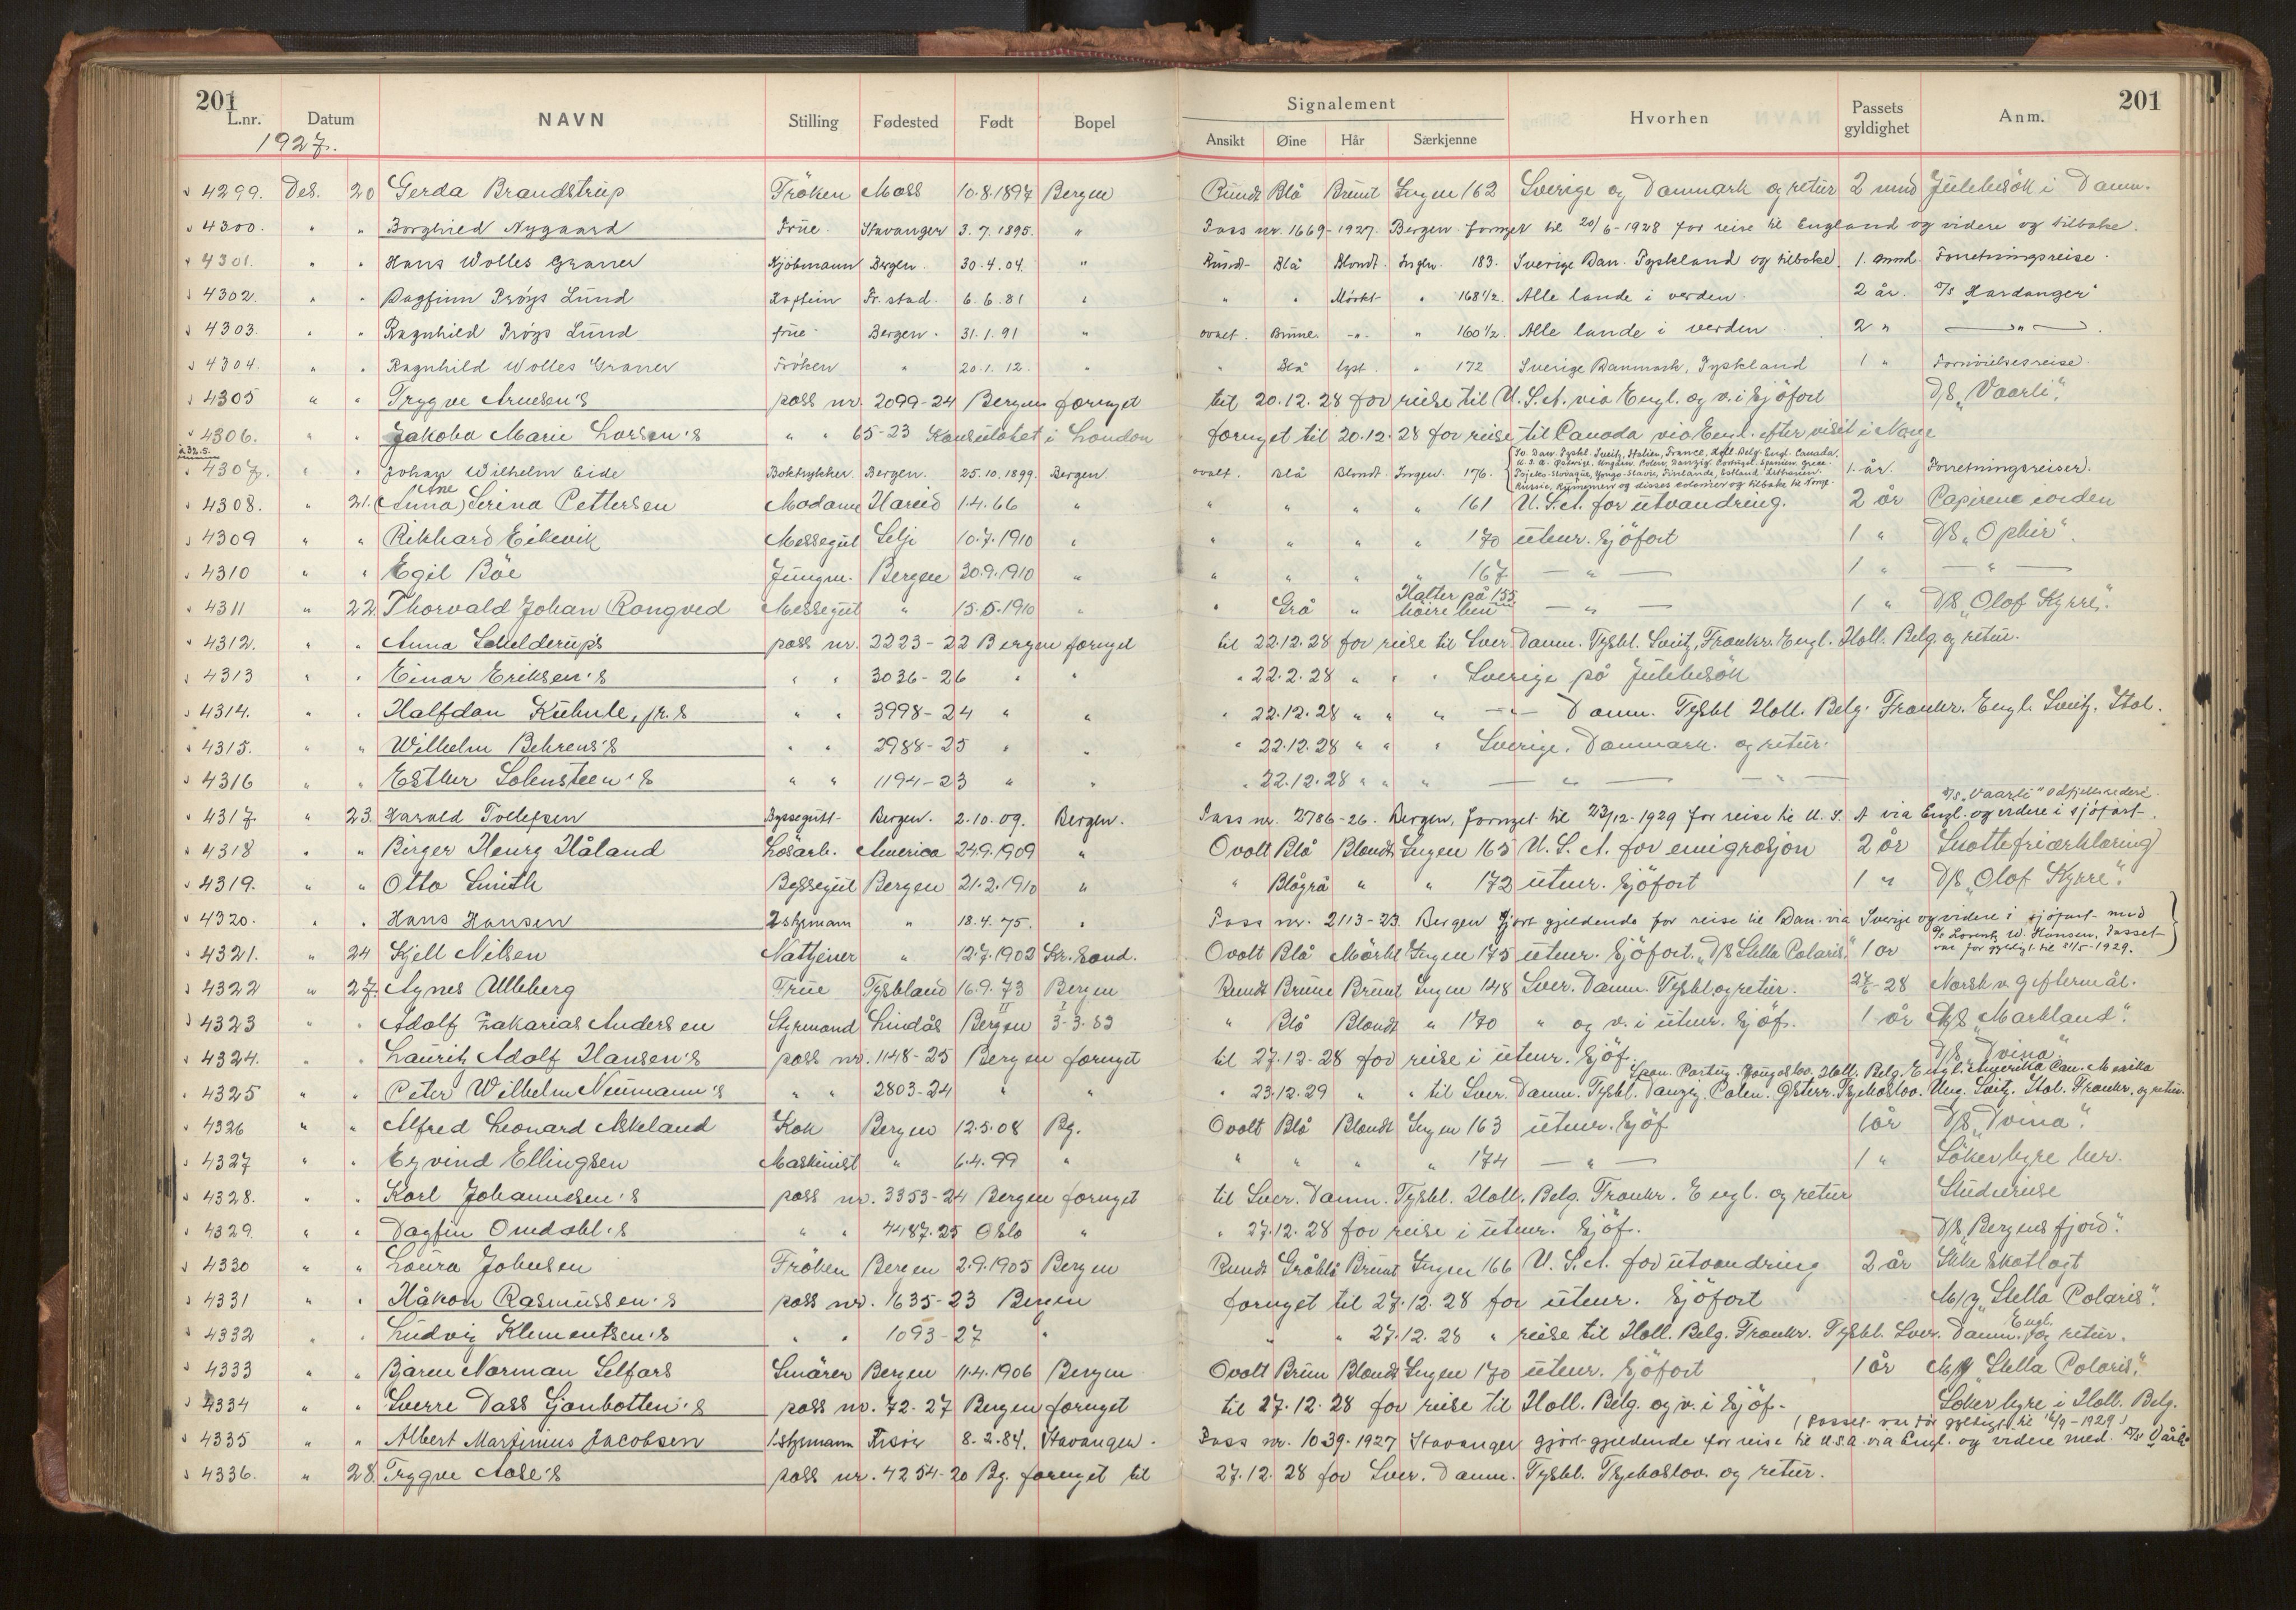 201
201
L.nr. Datum NAVN Stilling Fødested Født Bopel Signalement Ansikt Øine Hår Særkjenne Hvorhen Passets gyldighet Anm.
1927.
4299. Des. 20 Gerda Brandstrup Fröken Moss 10.8.1897 Bergen Rundt Blå Brunt Ingen 162 Sverige og Danmark og retur 2 mnd Julebesök i Danm.
4300. " " Borghied Nygaard Frue. Stavanger 3.7.1895. " Pass nr. 1669-1927. Bergen fornyet til 20/6-1928 for reise til England og videre og tilbake.
4301. " " Hans Wolles Graner Kjöbmann Bergen. 30.4.04. " Rundt Blå Blondt. Ingen. 183. Sverige Dan. Tyskland og tilbake). 1. mnd. Forretningsreise.
4302. " " Dagfinn Prøys Lund Kaptein Fr.stad. 6.6.81 " " " Mörkt " 168½. Alle lande i verden. 2 år. D/S "Hardanger"
4303. " " Ragnhild Prøys Lund frue Bergen. 31.1.91 " ovalt. Brune. -"- " 160½. Alle lande i verden 2 " —"—.
4304. " " Ragnhild Wolles Graner Fröken " 20.1.12. " " Blå lyst. " 172 Sverige Danmark, Tyskland 1 " Fornöielsesreise.
4305 " " Trygve Arnesen's pass nr. 2099-24 Bergen fornyet til 20.12.28 for reise til U.S.A. via Engl. og v. i Sjöfart D/S "Vaarli".
4306. " " Jakoba Marie Larsen's " " 65-23 Konsulatet i London fornyet til 20.12.28 for reise til Canada via Engl. efter visit i Norge
à 32.5.
4307. " " Johan Wilhelm Eide Boktrykker. Bergen. 25.10.1899. Bergen. ovalt. Blå Blondt. Ingen. 176. Sv. Dan. Tyskl. Sveitz, Italien, France, Holl. Belg. Engl. Canada, 1. år. Forretningsreiser).
U.S.A. Østerige, Ungarn. Polen, Danzig. Portugal. Spanien. Gree.
Tsjeko-Slovaque, Yougo-Slavie, Finlande, Estland. Lithauen.
Russie, Rumenien og disses colonier og tilbake til Norge.
4308. " 21. (Anna) Ane Serina Pettersen Madame Hareid 1.4.66 " " " " " 161 U.S.A. for utvandring. 2 år Papirene iorden
4309 " " Rikhard Eikevik Messegut Selje 10.7.1910 " " " " " 170 uteur. Sjöfart 1 " D/S "Ophir".
4310 " " Egil Böe Jungm. Bergen 30.9.1910 " " " " " 167 — " — 1 " — " —
4311 " 22. Thorvald Johan Rongved Messegut " 15.5.1910 " " Grå " Halter på höire ben 155 — " — 1 " D/S "Olaf Kyrre".
4312. " " Anna Schelderup's pass nr. 2223-22 Bergen fornyet til 22.12.28 for reise til Sver. Danm. Tyskl. Sveitz, Frankr. Engl. Holl. Belg. og retur.
4313 " " Einar Eriksen's " " 3036-26 " " " 22.2.28 " " " Sverige på Julebesök
4314. " " Halfdan Kuhnle, jr.s " " 3998-24 " " " 22.12.28 " " " —"— Danm. Tyskl Holl. Belg. Frankr. Engl. Sveitz. Ital.
4315. " " Wilhelm Behrens's " " 2988-25 " " " 22.12.28 " " " Sverige. Danmark. og retur.
4316 " " Esther Solensteen's " " 1194-23 " " " 22.12.28 " " " — " — " —
4317. " 23. Harald Tollefsen Byssegutt Bergen. 2.10.09. Bergen. Pass nr. 2786-26. Bergen, fornyet til 23/12-1929 for reise til U.S.A via Engl. og videre i sjöfart. D/S "Vaarli" Odfjells rederi.
4318 " " Birger Henry Håland Lösarb. America 24.9.1909 " Ovalt Blå Blondt Ingen 165 U.S.A. for emigrasjon 2 år Skattefriærklæring
4319. " " Otto Smith Byssegut Bergen 21.2.1910 " " Blågrå " " 172 uteur. Sjöfart 1 " D/S "Olaf Kyrre".
4320. " " Hans Hansen 2 styrmann " 18.4.75. " Pass nr. 2113-23. Bergen gjort gjeldende for reise til Dan. via Sverige og videre i sjöfart med
D/S Lorentz W. Hansen, Passet
var för gyldigt til 21/5-1929.
4321. " 24 Kjell Nilsen Nattjener " 12.7.1902 Kr.sand. Ovalt Blå Mörkt Ingen 175 uteur. Sjöfart. "D/S Stella Polaris." 1 år
4322 " 27. Agnes Ulleberg Frue Tyskland 16.9.73 Bergen Rundt Brune Brunt Ingen 148 Sver. Danm. Tyskl. og retur. 27/6-28 Norsk v. giftermål.
4323 " " Adolf Zakarias Andersen Styrmand Lindås Bergen 3.3.83 " Blå Blondt " 170 " og v. i uteur. Sjöf. 1 år M/S "Markland".
4324. " " Lauritz Adolf Hansen's pass nr. 1148-25 Bergen fornyet til 27.12.28 for reise i uteur. Sjöf. D/S "Dvina".
Span. Portug. Jougoslav. Holl. Belg. Engl. Amerika Can. Mexika
4325 " " Peter Wilhelm Neumann's " " 2803-24 " " " 23.12.29 " " til Sver. Danm. Tyskl. Danzig, Polen. Österr. Tsjekoslov. Ung. Sveitz. Ital. Frankr. og retur.
4326 " " Alfred Leonard Askeland Kok Bergen 12.5.08 Bg. Ovalt Blå Blondt Ingen 163 uteur. Sjöf 1 år D/S "Dvina".
4327 " " Eyvind Ellingsen Maskinist " 6.4.99 " " " " " 174 — " — 1 " Söker hyre her.
4328. " " Karl Johannesen's pass nr. 3353-24 Bergen fornyet til Sver. Danm. Tyskl. Holl. Belg. Frankr. Engl. og retur Studiereise
4329. " " Dagfin Omdahl's " " 4487.25 Oslo " " 27.12.28 for reise i uteur. Sjöf. D/S "Bergensfjord".
4330 " " Laura Johnsen Fröken Bergen 2.9.1905 Bergen Rundt Gråblå Brunt Ingen 166 U.S.A. for utvandring 2 år Ikke skatlagt
4331 " " Håkon Rasmussen's pass nr. 1635-23 Bergen fornyet til 27.12.28 for uteur. Sjöfart M/y "Stella Polaris".
4332 " " Ludvig Klementsen's " " 1093-27 " " " 27.12.28 " reise til Holl. Belg. Frankr. Tyskl. Sver. Danm. Engl. og retur.
4333 " " Bjarne Norman Selfors Smörer Bergen 11.4.1906 Bergen Ovalt Brun Blondt Ingen 170 uteur. Sjöfart 1 år M/y "Stella Polaris".
4334 " " Sverre Dass Gjonbotten's pass nr. 72-27 Bergen fornyet til 27.12.28 for reise til Holl. Belg. og v. i Sjöf. Söker hyre i Holl. Belg.
(Passet var för gyldigt til 16/9-1929)
4335 " " Albert Martinius Jacobsen 1.styrmann Risör 8.2.84. Stavanger. Pass nr. 1039-1927 Stavanger gjort gjeldende for reise til U.S.A. via Engl. og videre med. D/S Vårli
4336. " 28. Trygve Aase's pass nr. 4254-20 Bg. fornyet til 27.12.28 for Sver. Danm. Tyskl. Tsjekoslov. og retur.